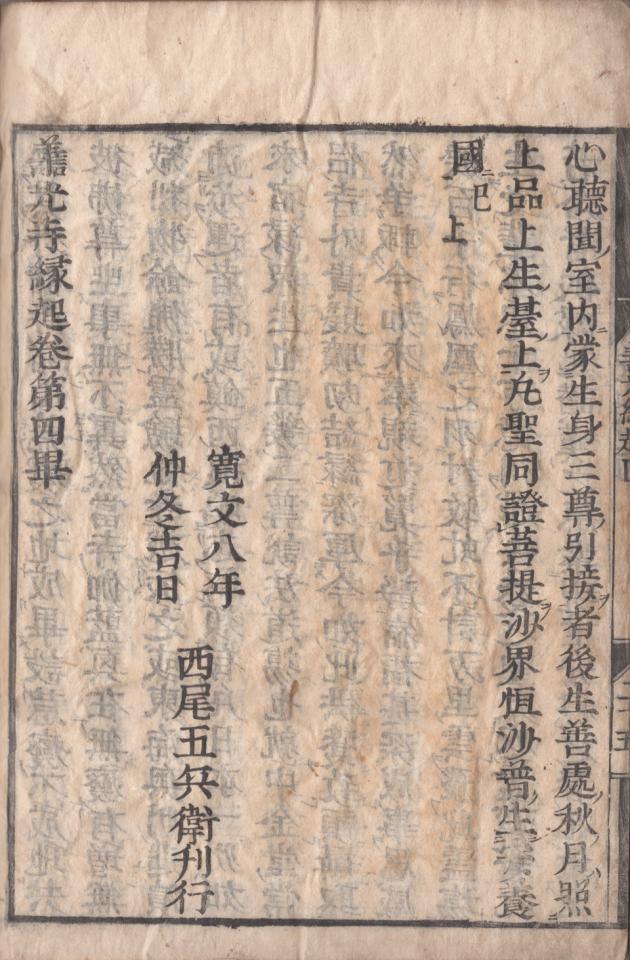 心聽聞室内蒙生身三尊引接者後生善處秋月照
上品上生臺上九聖同證菩提沙界恒沙普生安養
國
已上
寛文八年
仲冬吉日
西尾五兵衛刊行
善光寺縁起巻第四畢